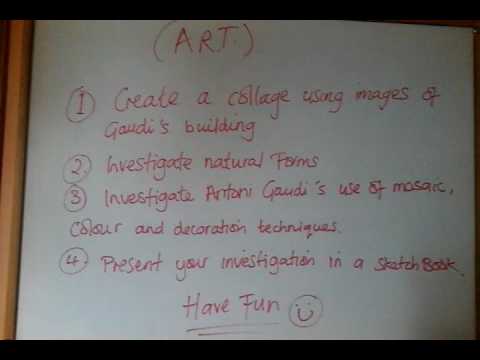 (ART.)
① Create a collage using images of
Gaudi's building
② Investigate natural Forms
③ Investigate Antoni Gaudi's use of mosaic,
colour and decoration techniques.
④ Present your investigation in a sketchBook.
Have Fun